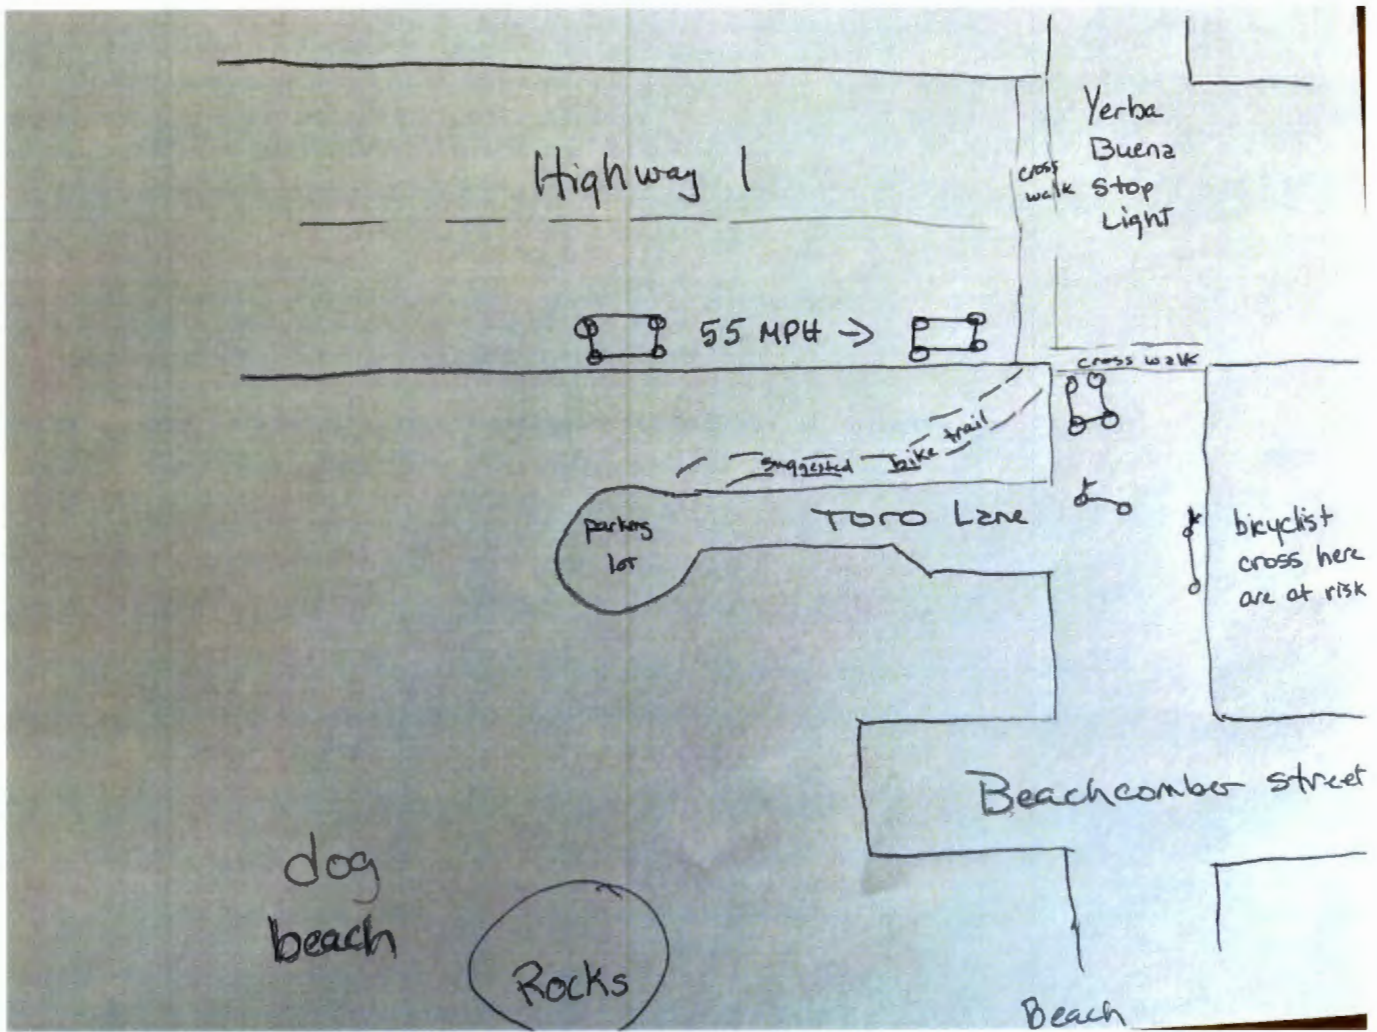 Yerba
Buena
Stop
Light
cross
walk
Highway 1
55 MPH →
cross walk
suggested bike trail
parking
lot
Toro Lane
bicyclist
cross here
are at risk
Beachcomber street
dog
beach
Rocks
Beach